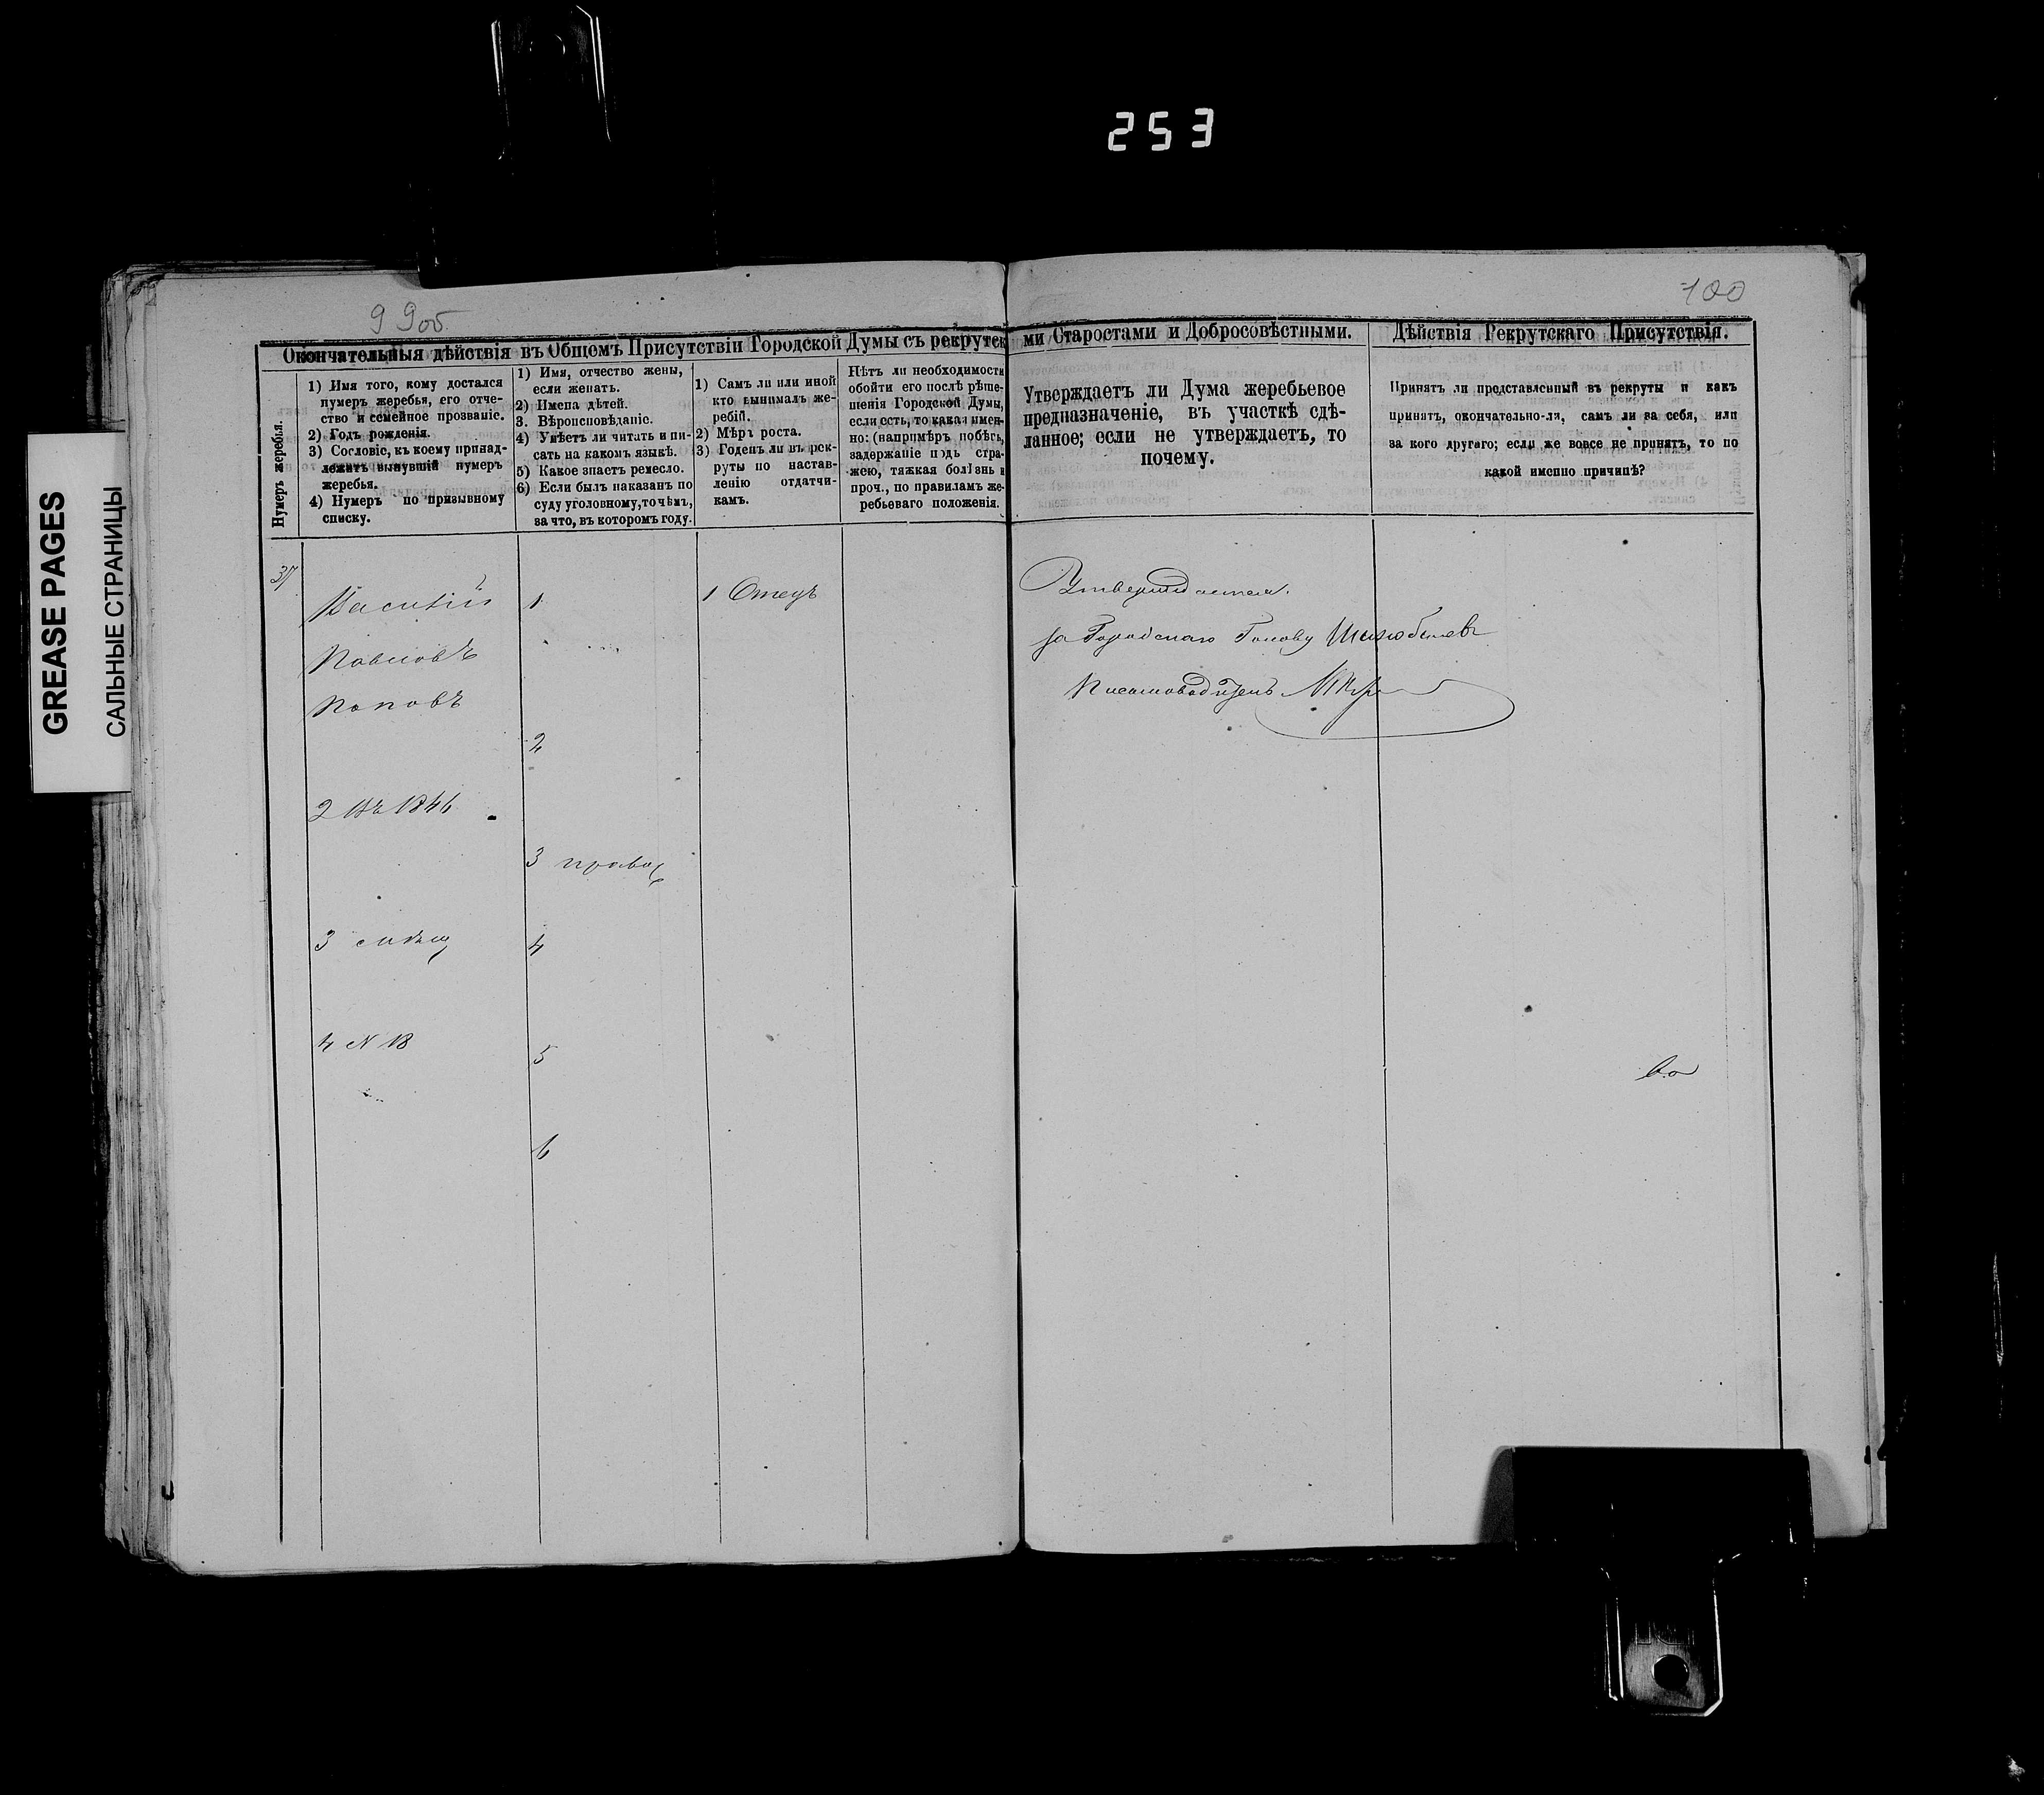 253
GREASE PAGES
САЛЬНЫЕ СТРАНИЦЫ
99об
100
Окончательныя дѣйствія въ Общемъ Присутствіи Городской Думы съ рекрутскими Старостами и Добросовѣстными.
Дѣйствія Рекрутскаго Присутствія.
Нумеръ жеребья.
1) Имя того, кому достался
нумеръ жеребья, его отче-
ство и семейное прозваніе.
2) Годъ рожденія.
3) Сословіе, къ коему принад-
лежитъ вынувшій нумеръ
жеребья.
4) Нумеръ по призывному
списку.
1) Имя, отчество жены,
если женатъ.
2) Имена дѣтей.
3. Вѣроисповѣданіе.
4) Умѣетъ ли читать и пи-
сать на какомъ языкѣ.
5) Какое знаетъ ремесло.
6) Если былъ наказанъ по
суду уголовному, то чѣмъ,
за что, въ которомъ году.
1) Самъ ли или иной
кто вынималъ же-
ребій.
2) Мѣра роста.
3) Годенъ ли въ рек-
руты по настав-
ленію отдатчи-
камъ.
Нѣтъ ли необходимости
обойти его послѣ рѣше-
шенія Городской Думы,
если есть, то какая имен-
но: (напримѣръ побѣгъ,
задержаніе подъ стра-
жею, тяжкая болѣзнь и
проч., по правиламъ же-
ребьеваго положенія.
Утверждаетъ ли Дума жеребьевое
предназначеніе, въ участкѣ сдѣ-
ланное; если не утверждаетъ, то
почему.
Принятъ ли представленный въ рекруты и какъ
принятъ, окончательно-ли, самъ ли за себя, или
за кого другаго; если же вовсе не принятъ, то по
какой именно причинѣ?
37
Василій
Павловъ
Поповъ
2 Въ 1846
3
4 N 18
1
2
3 правос
4
5
6
1 Отецъ
Утверждается.
за Городскаго Голову
Письмоводитель